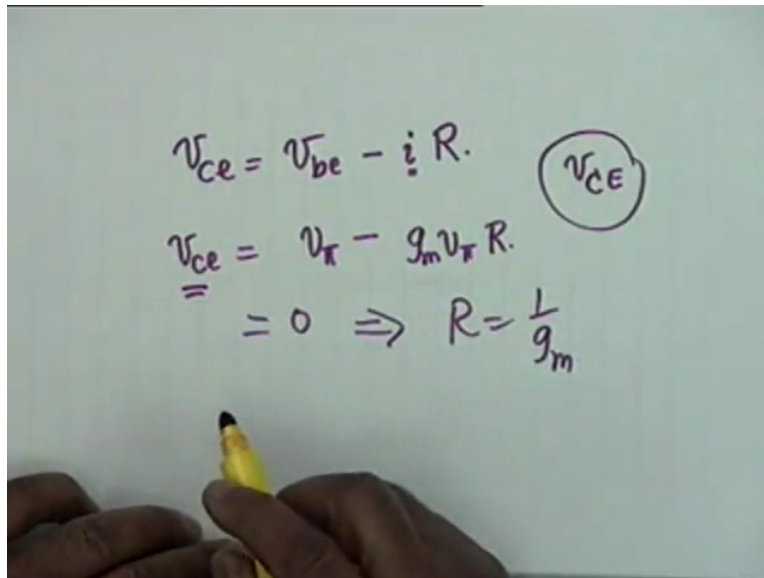 v_ce = v_be - i R.
v_CE
v_ce = v_π - g_m v_π R.
= 0 ⇒ R = 1/g_m